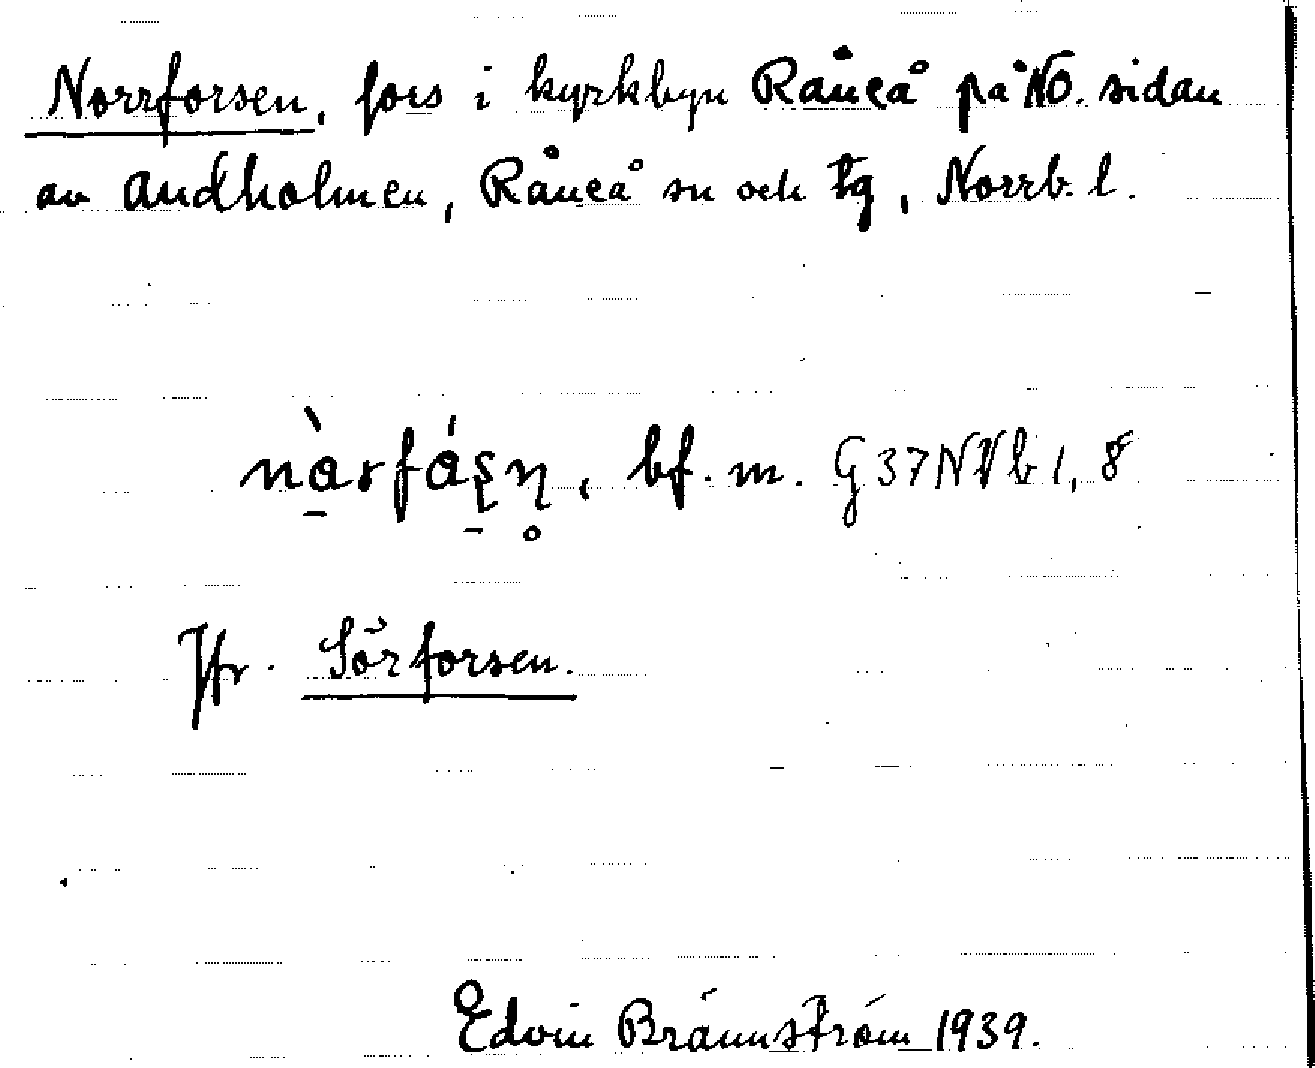 Norrforsen, fors i kyrkbyn Råneå på NO. sidan
av Andholmen, Råneå sn och tg, Norrb. l.
nàrfáʂn̥, bf. m. G37NVb1,8
Jfr. Sörforsen.
Edvin Brännström 1939.